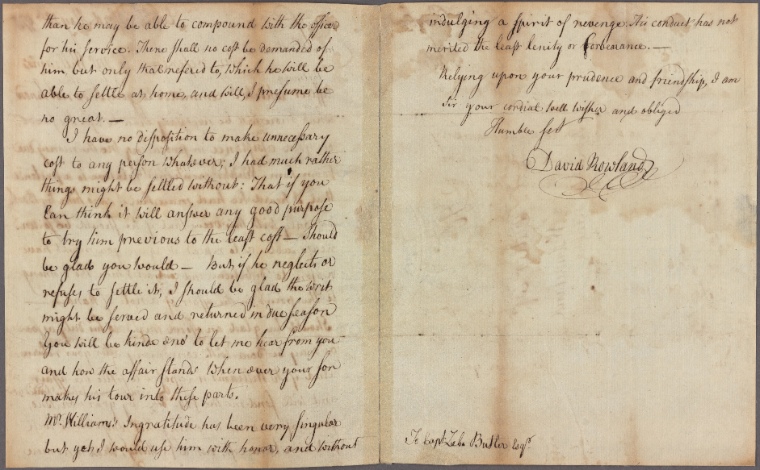 than he may be able to compound with the officer
for his service. There shall no cost be demanded of
him but only that refered to, which he will be
able to settle at home, and will, I presume be
no great. —
I have no disposition to make unnecessary
cost to any person whatever; I had much rather
things might be settled without: That if you
Can think it will answer any good purpose
to try him previous to the least cost — Should
be glad you would — But if he neglects or
refuses to settle it, I should be glad the writ
might be served and returned in due season
You will be kind eno' to let me hear from you
and how the affair stands when ever your son
makes his tour into these parts.
Mr. Williams's Ingratitude has been very singular
but yet I would use him with honor, and without
indulging a spirit of revenge. His conduct has not
merited the least lenity or forbearance. —
Relying upon your prudence and friendship, I am
Sir your cordial well wisher and obliged
Humble Sert
David Rowland
To Capt. Zebn Butler Esqr.